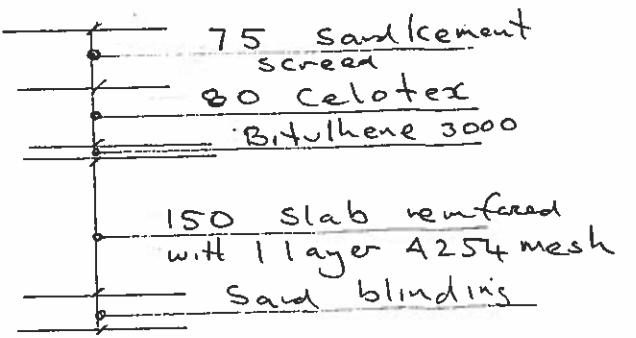 75 Sand/cement
screed
80 Celotex
Bitulhene 3000
150 slab reinforced
with 1 layer A254 mesh
Sand blinding